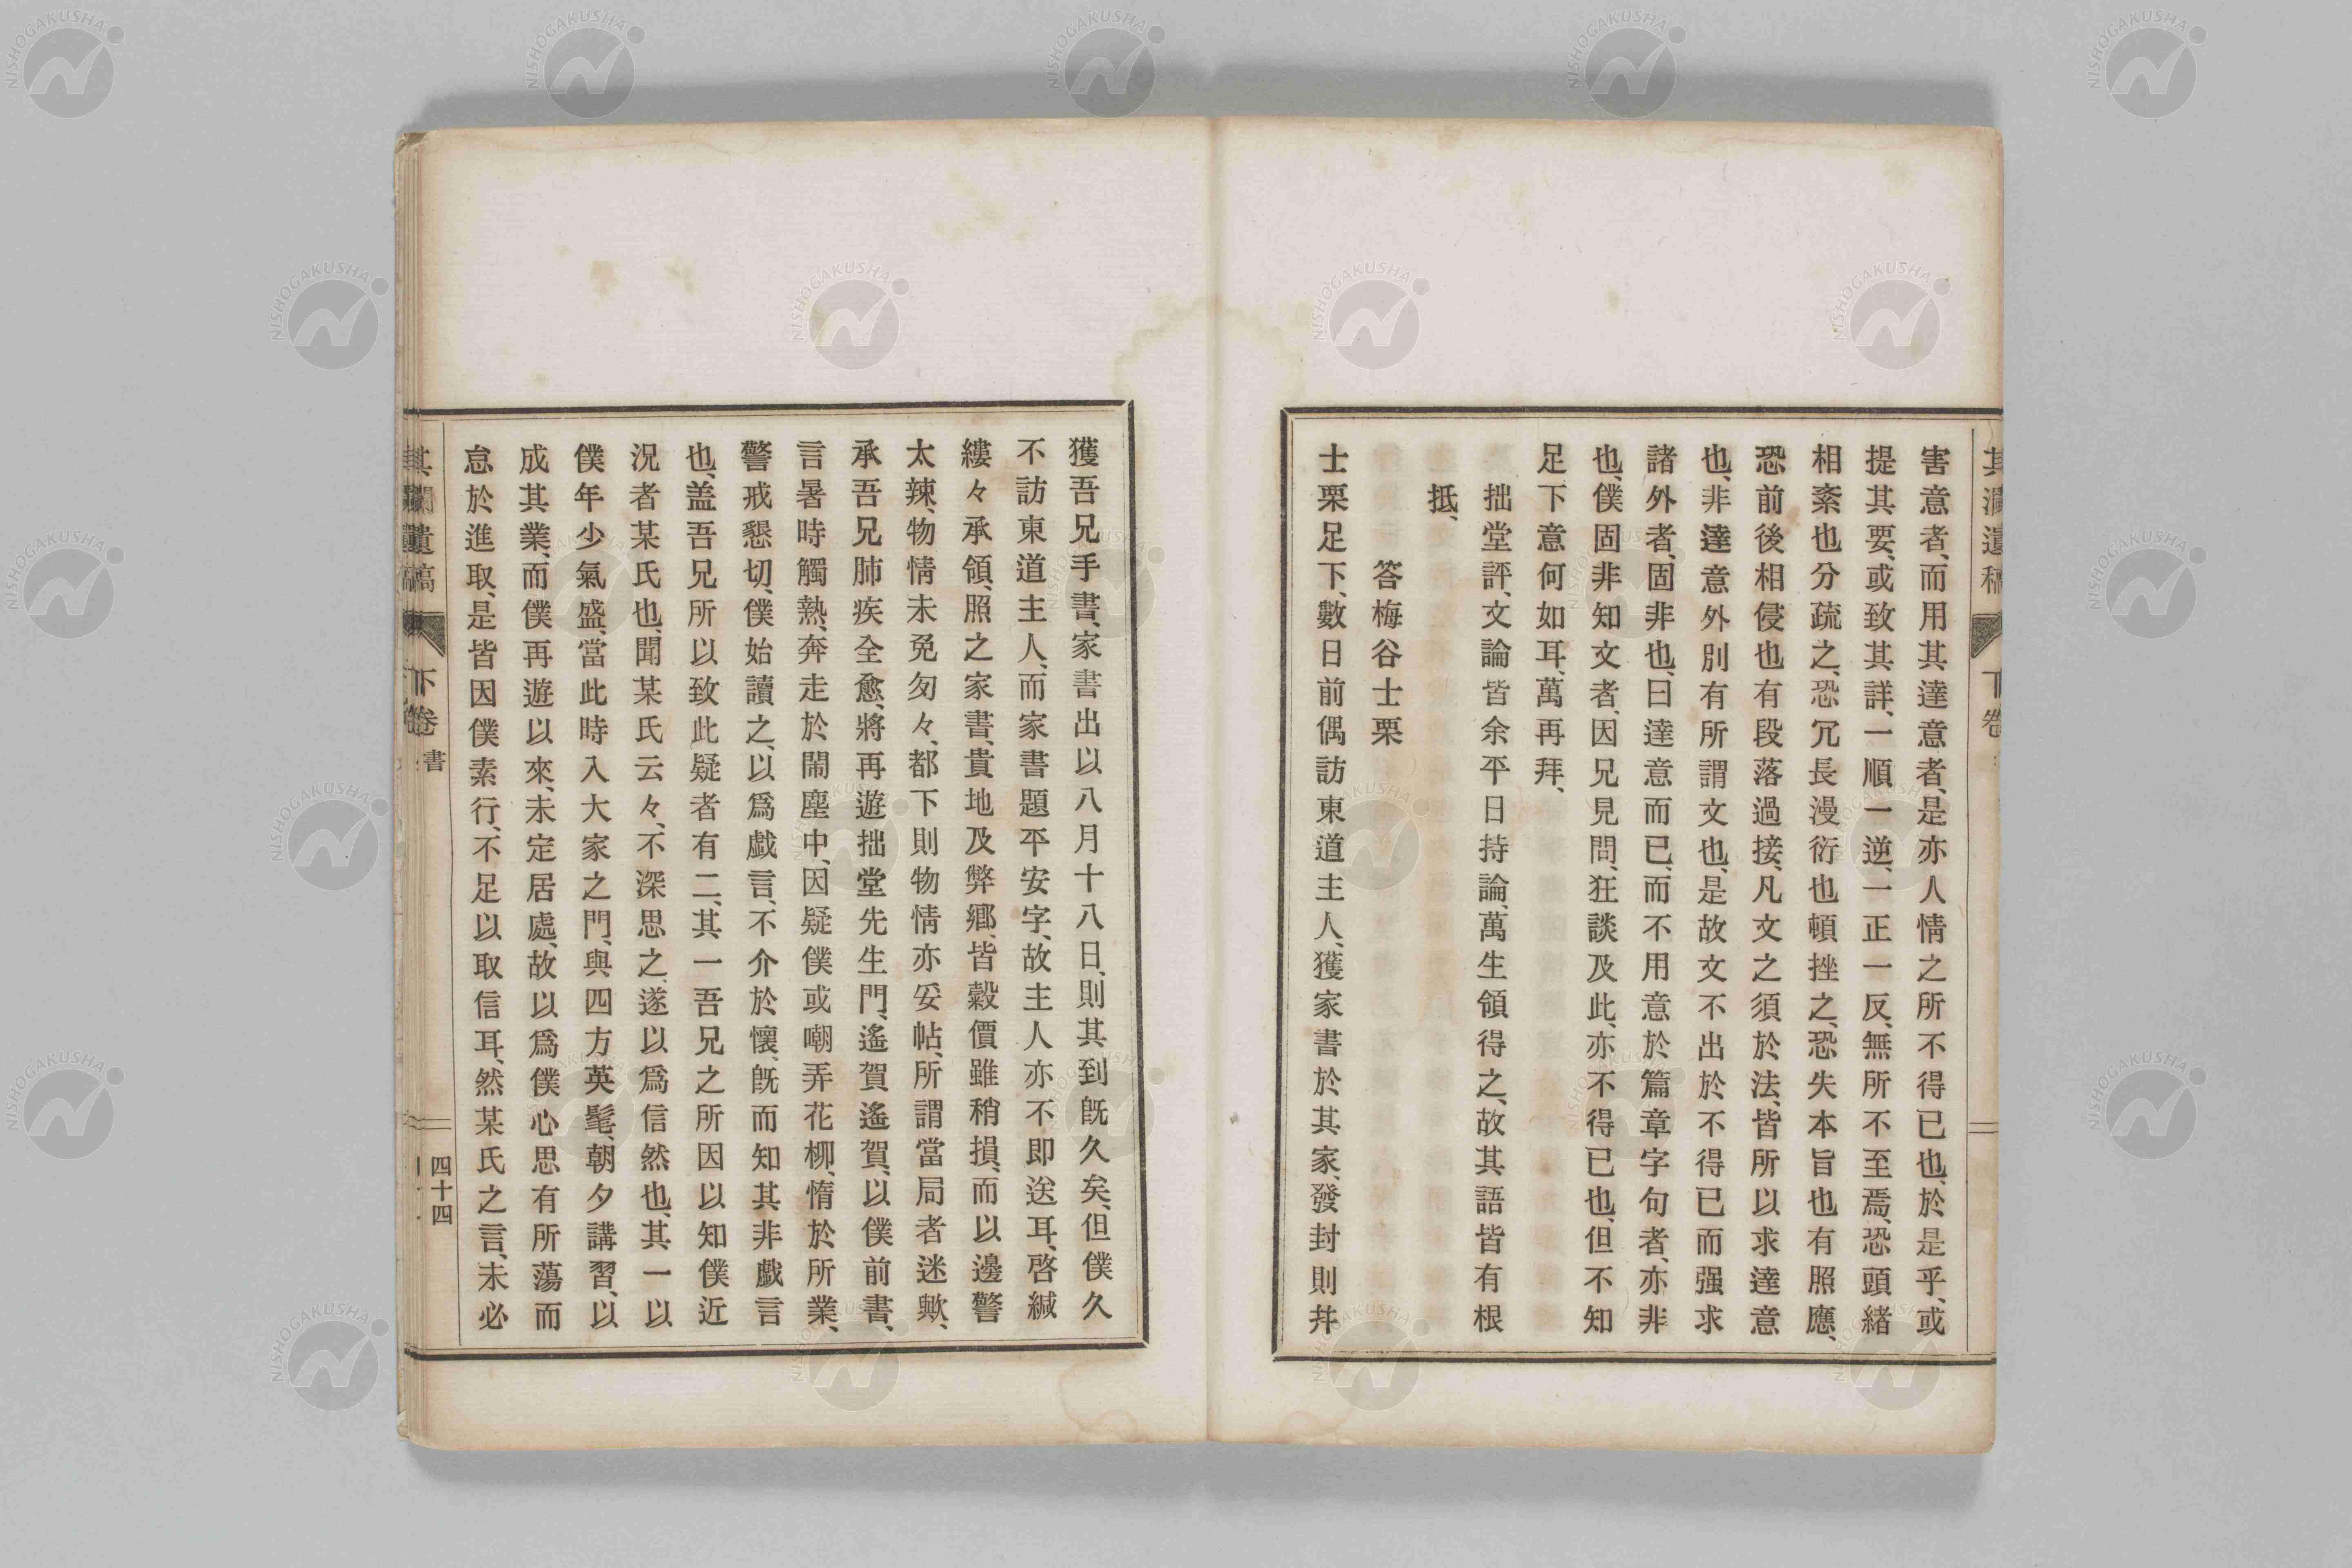 害意者、而用其達意者、是亦人情之所不得已也、於是乎、或
提其要、或致其詳、一順一逆、一正一反、無所不至焉、恐頭緖
相紊也分疏之、恐冗長漫衍也頓挫之、恐失本旨也有照應、
恐前後相侵也有段落過接、凡文之須於法、皆所以求達意
也、非達意外別有所謂文也、是故文不出於不得已而强求
諸外者、固非也、曰達意而已、而不用意於篇章字句者、亦非
也、僕固非知文者、因兄見問、狂談及此、亦不得已也、但不知
足下意何如耳、萬再拜、
拙堂評、文論皆余平日持論、萬生領得之、故其語皆有根
抵、
答梅谷士栗
士栗足下、數日前偶訪東道主人、獲家書於其家、發封則幷
獲吾兄手書、家書出以八月十八日、則其到旣久矣、但僕久
不訪東道主人、而家書題平安字、故主人亦不即送耳、啓緘
縷々承領、照之家書、貴地及弊鄕、皆穀價雖稍損、而以邊警
太辣、物情未免匆々、都下則物情亦妥帖、所謂當局者迷歟、
承吾兄肺疾全愈、將再遊拙堂先生門、遙賀遙賀、以僕前書、
言暑時觸熱、奔走於鬧塵中、因疑僕或嘲弄花柳、惰於所業、
警戒懇切、僕始讀之、以爲戲言、不介於懷、旣而知其非戲言
也、盖吾兄所以致此疑者有二、其一吾兄之所因以知僕近
況者某氏也、聞某氏云々、不深思之、遂以爲信然也、其一以
僕年少氣盛、當此時入大家之門、與四方英髦、朝夕講習、以
成其業、而僕再遊以來、未定居處、故以爲僕心思有所蕩而
怠於進取、是皆因僕素行、不足以取信耳、然某氏之言、未必
其瀾遺稿
下卷
書
四十四